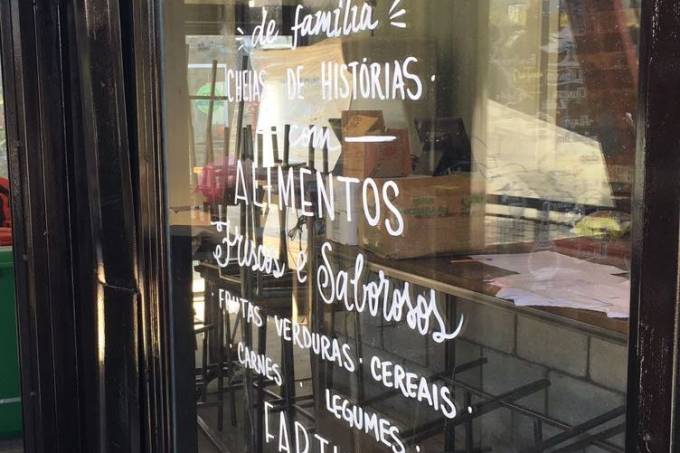 de família
CHEIAS DE HISTÓRIAS.
com
ALIMENTOS
Friscos e Saborosos
FRUTAS · VERDURAS · CEREAIS ·
CARNES · LEGUMES ·